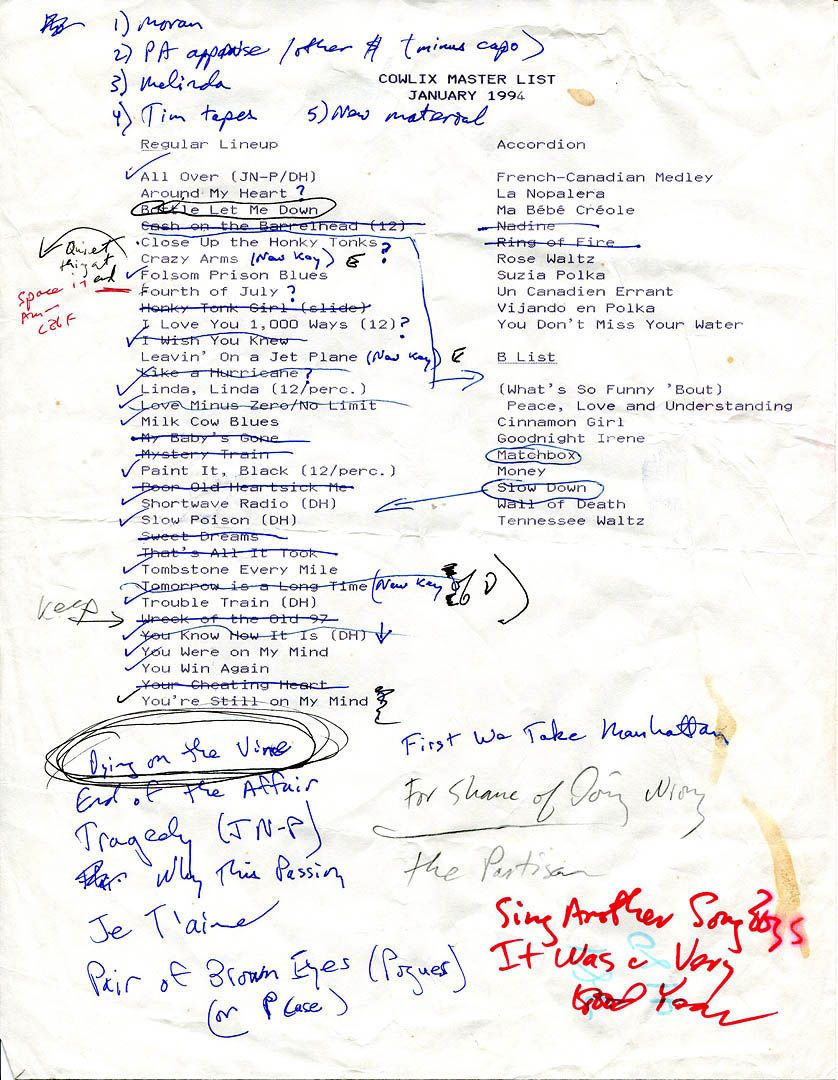 1) Moran
2) PA appraise / other $ (minus capo)
3) Melinda
4) Tim tapes 5) New material
COWLIX MASTER LIST
JANUARY 1994
Regular Lineup
All Over (JN-P/DH)
Around My Heart ?
Bottle Let Me Down
Cash on the Barrelhead (12)
Close Up the Honky Tonks ?
Crazy Arms (New Key) E
Folsom Prison Blues
Fourth of July ?
Honky Tonk Girl (slide)
I Love You 1,000 Ways (12) ?
I Wish You Knew
Leavin' On a Jet Plane (New Key) E
Like a Hurricane ?
Linda, Linda (12/perc.)
Love Minus Zero/No Limit
Milk Cow Blues
My Baby's Gone
Mystery Train
Paint It, Black (12/perc.)
Poor Old Heartsick Me
Shortwave Radio (DH)
Slow Poison (DH)
Sweet Dreams
That's All It Took
Tombstone Every Mile
Tomorrow is a Long Time (New Key D)
Trouble Train (DH)
Wreck of the Old 97
You Know How It Is (DH)
You Were on My Mind
You Win Again
Your Cheating Heart
You're Still on My Mind
Quiet
at end
Space it
Keep
Accordion
French-Canadian Medley
La Nopalera
Ma Bébé Créole
Nadine
Ring of Fire
Rose Waltz
Suzia Polka
Un Canadien Errant
Vijando en Polka
You Don't Miss Your Water
B List
(What's So Funny 'Bout)
Peace, Love and Understanding
Cinnamon Girl
Goodnight Irene
Matchbox
Money
Slow Down
Wall of Death
Tennessee Waltz
Dying on the Vine
End of the Affair
Tragedy (JN-P)
Why This Passion
Je T'aime
Pair of Brown Eyes (Pogues)
(or P Case)
First We Take Manhattan
For Shame of Doing Wrong
the Partisan
Sing Another Song Boys
It Was a Very
Good Year